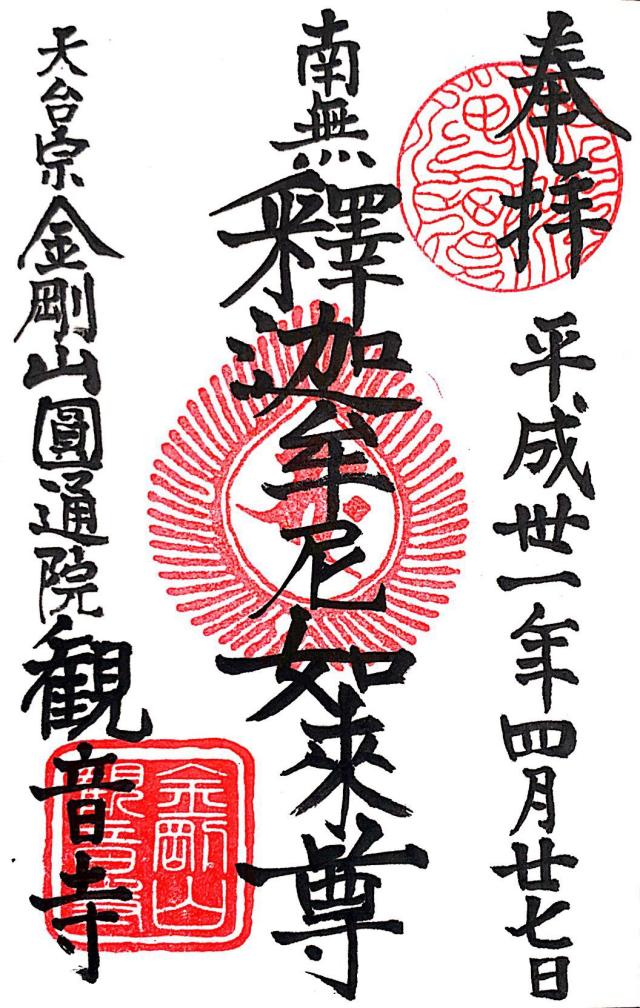 奉拝
平成丗一年四月廿七日
南無釋迦牟尼如来尊
天台宗金剛山圓通院観音寺
金剛山
観音寺